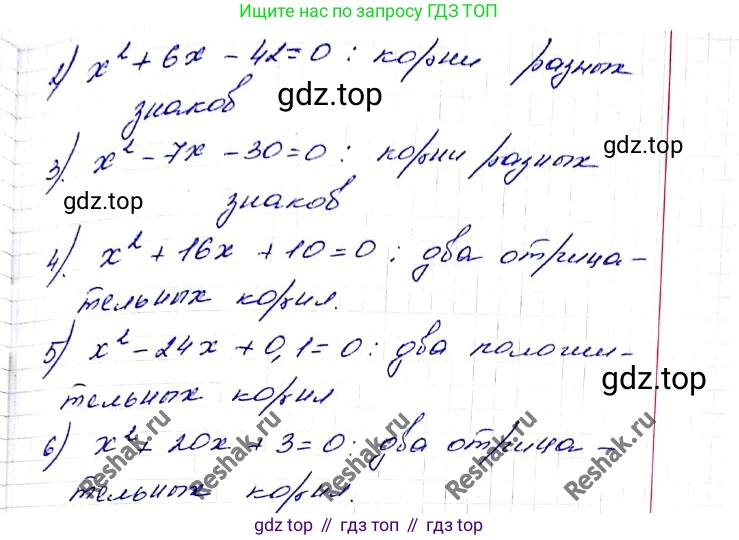 Ищите нас по запросу ГДЗ ТОП
2) x² + 6x - 42 = 0 : корни разных
знаков
gdz.top
3). x² - 7x - 30 = 0 : корни разных
gdz.top
gdz.top
знаков
4). x² + 16x + 10 = 0 : два отрица-
тельных корня.
5) x² - 24x + 0,1 = 0 : два положи-
gdz.top
тельных корня
6) x² + 20x + 3 = 0 : два отрица -
тельных корня.
Reshak.ru
Reshak.ru
Reshak.ru
Reshak.ru
gdz top // гдз топ // gdz top